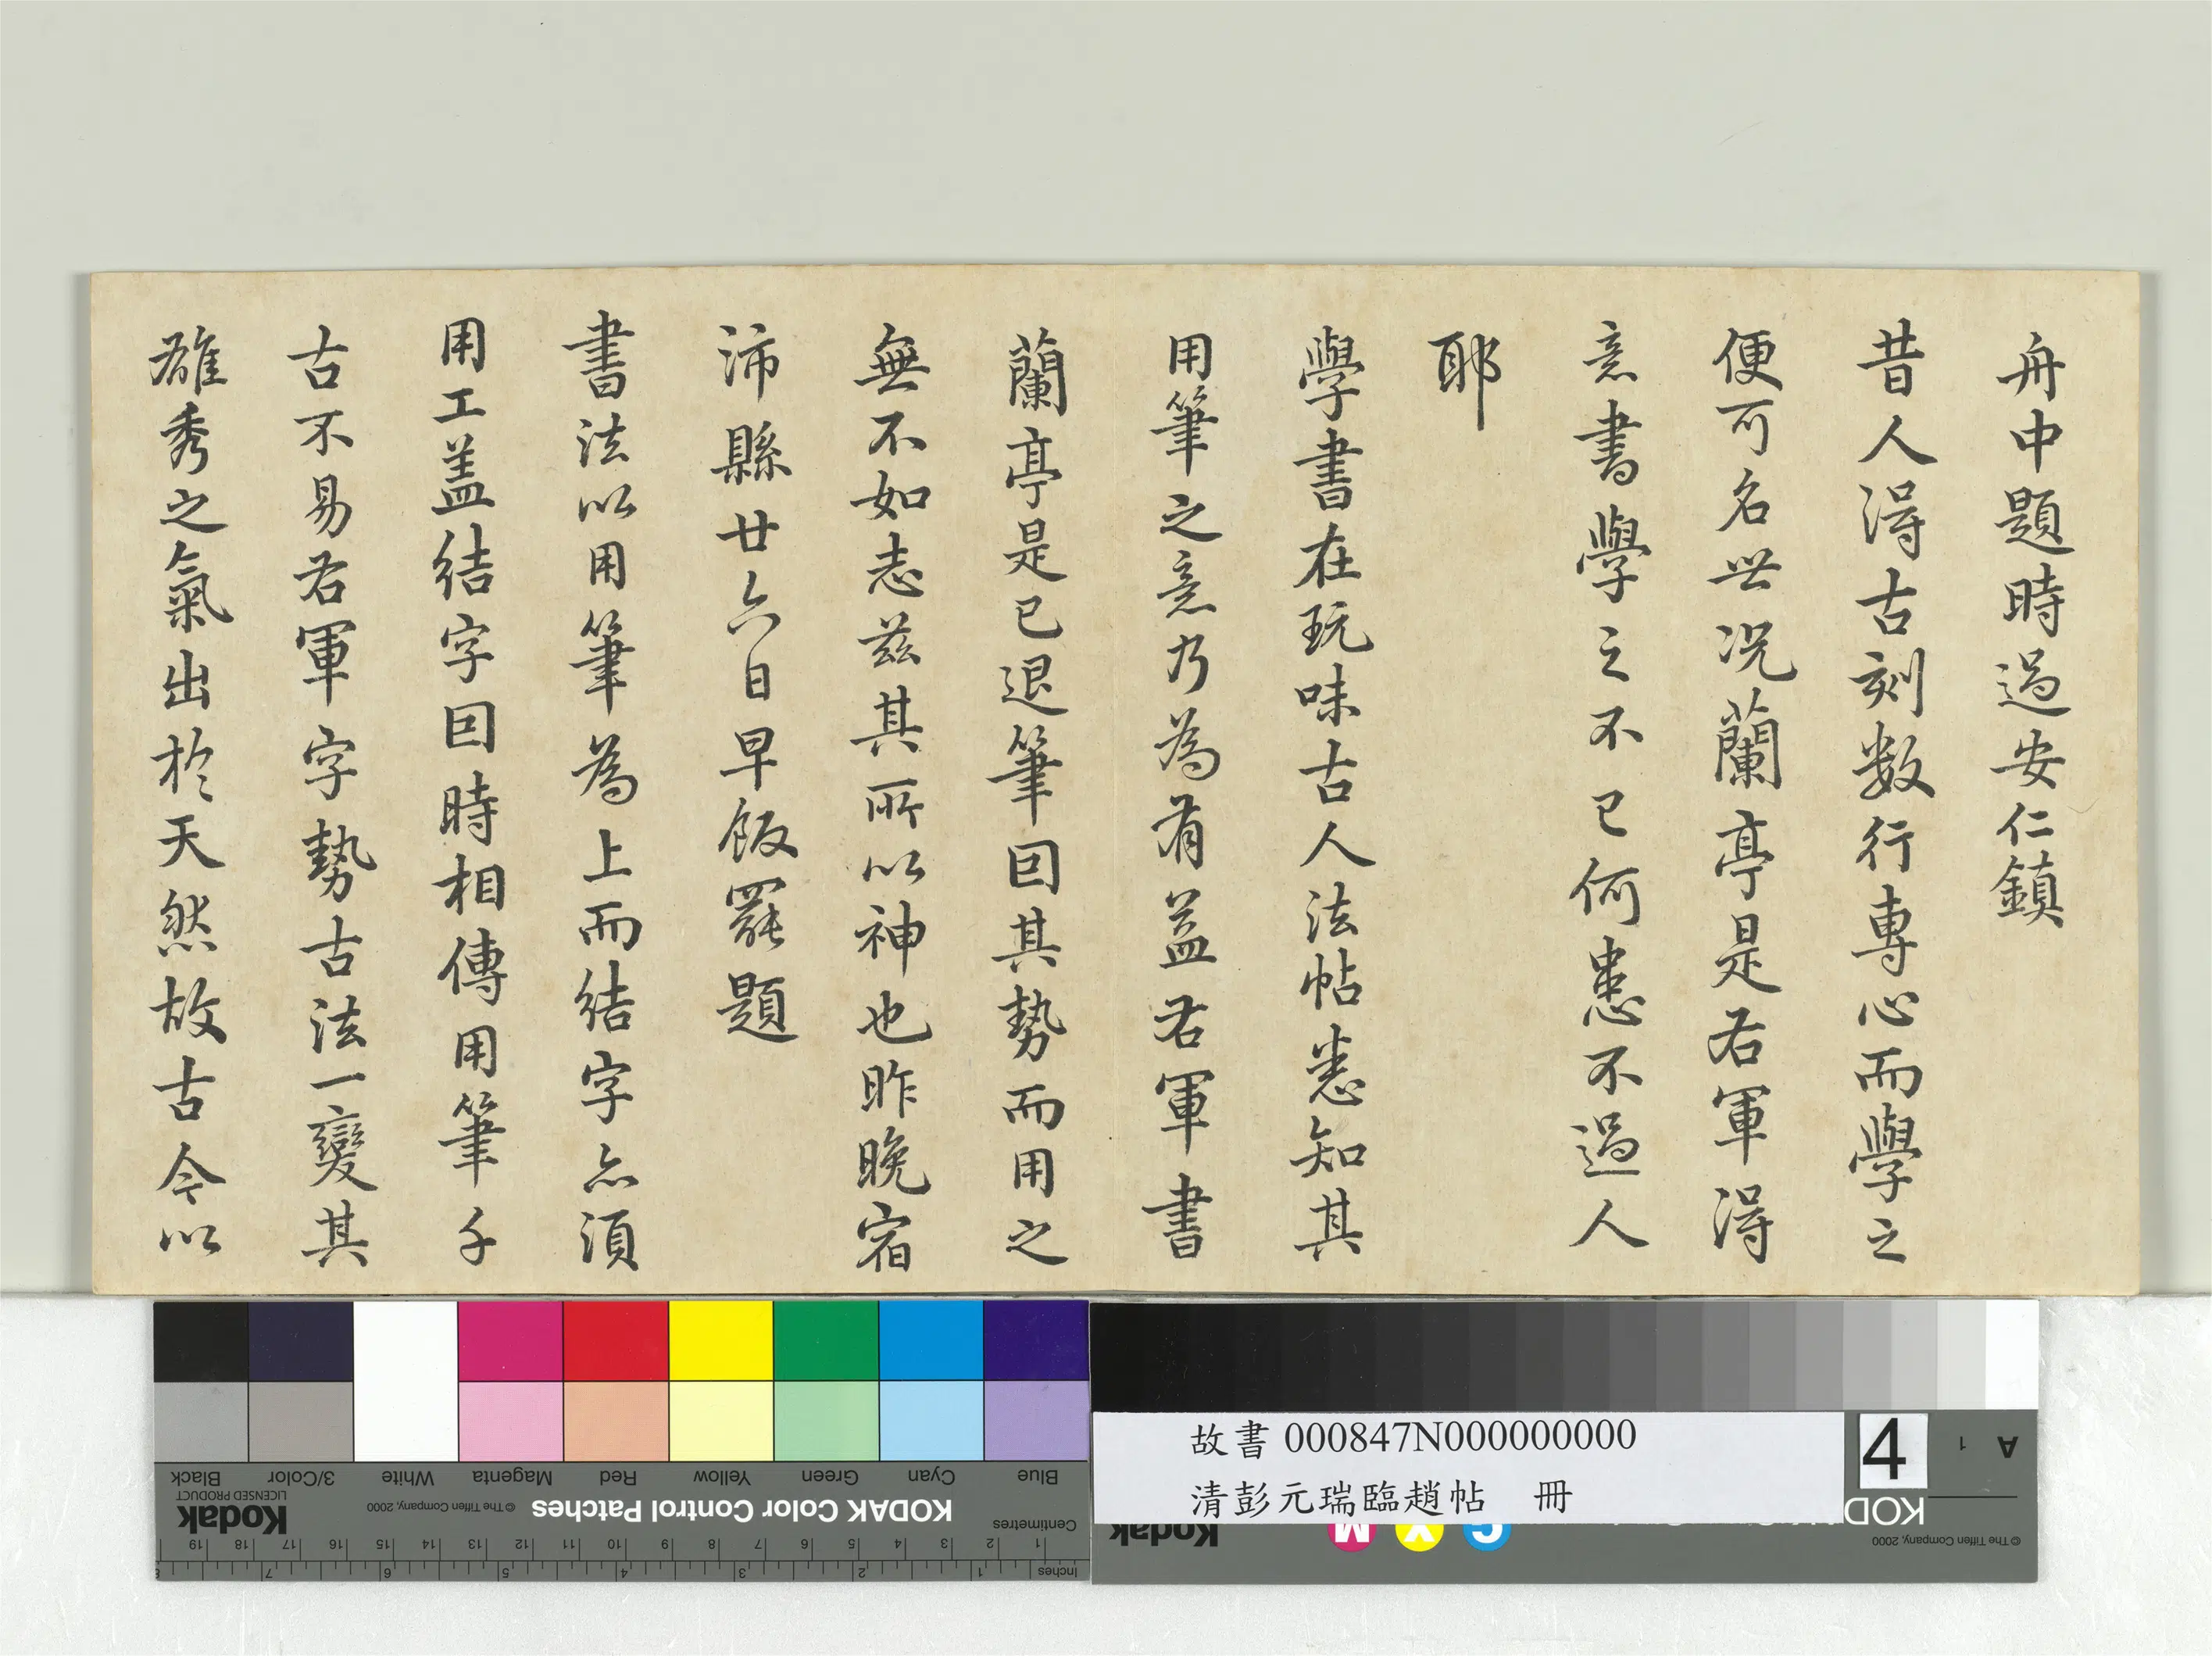 舟中題時過安仁鎮
昔人得古刻数行專心而學之
便可名世况蘭亭是右軍得
意書學之不已何患不過人
耶
學書在玩味古人法帖悉知其
用筆之意乃為有益右軍書
蘭亭是已退筆因其勢而用之
無不如志兹其所以神也昨晚宿
沛縣廿六日早飯罷題
書法以用筆為上而結字亦須
用工盖結字因時相傳用筆千
古不易右軍字勢古法一變其
雄秀之氣出於天然故古今以
Black 3/Color White Magenta Red Yellow Green Cyan Blue
Kodak
LICENSED PRODUCT
© The Tiffen Company, 2000
KODAK Color Control Patches
Centimetres
1 2 3 4 5 6 7 8 9 10 11 12 13 14 15 16 17 18 19
Inches
1 2 3 4 5 6 7 8
故書 000847N000000000
清彭元瑞臨趙帖 冊
4
A 1
Kodak
C Y M
KOD
© The Tiffen Company, 2000